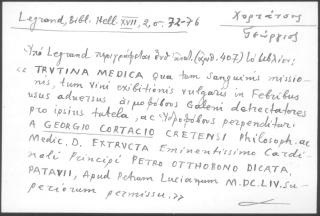 Legrand, Bibl. Hell. XVII, 2, σ. 72-76
Χορτάτσης
Γεώργιος
Ὑπὸ Legrand περιγράφεται ἀριθ. 407) τὸ βιβλίον:
« TRUTINA MEDICA qua tam sanguinis missio-
nis, tum vini exibitionis vulgaris in Febribus
usus adversus αἱμοφόβους Galeni detrectatores
pro ipsius tutela, ac ὑδροφόβους perpenditur.
A GEORGIO CORTACIO CRETENSI Philosoph. ac
Medic. D. EXTRVCTA Eminentissimo Cardi-
nali Principi PETRO OTTHOBONO DICATA.
PATAVII, Apud Petrum Lucianum M.DC.LIV. Su-
periorum permissu.»